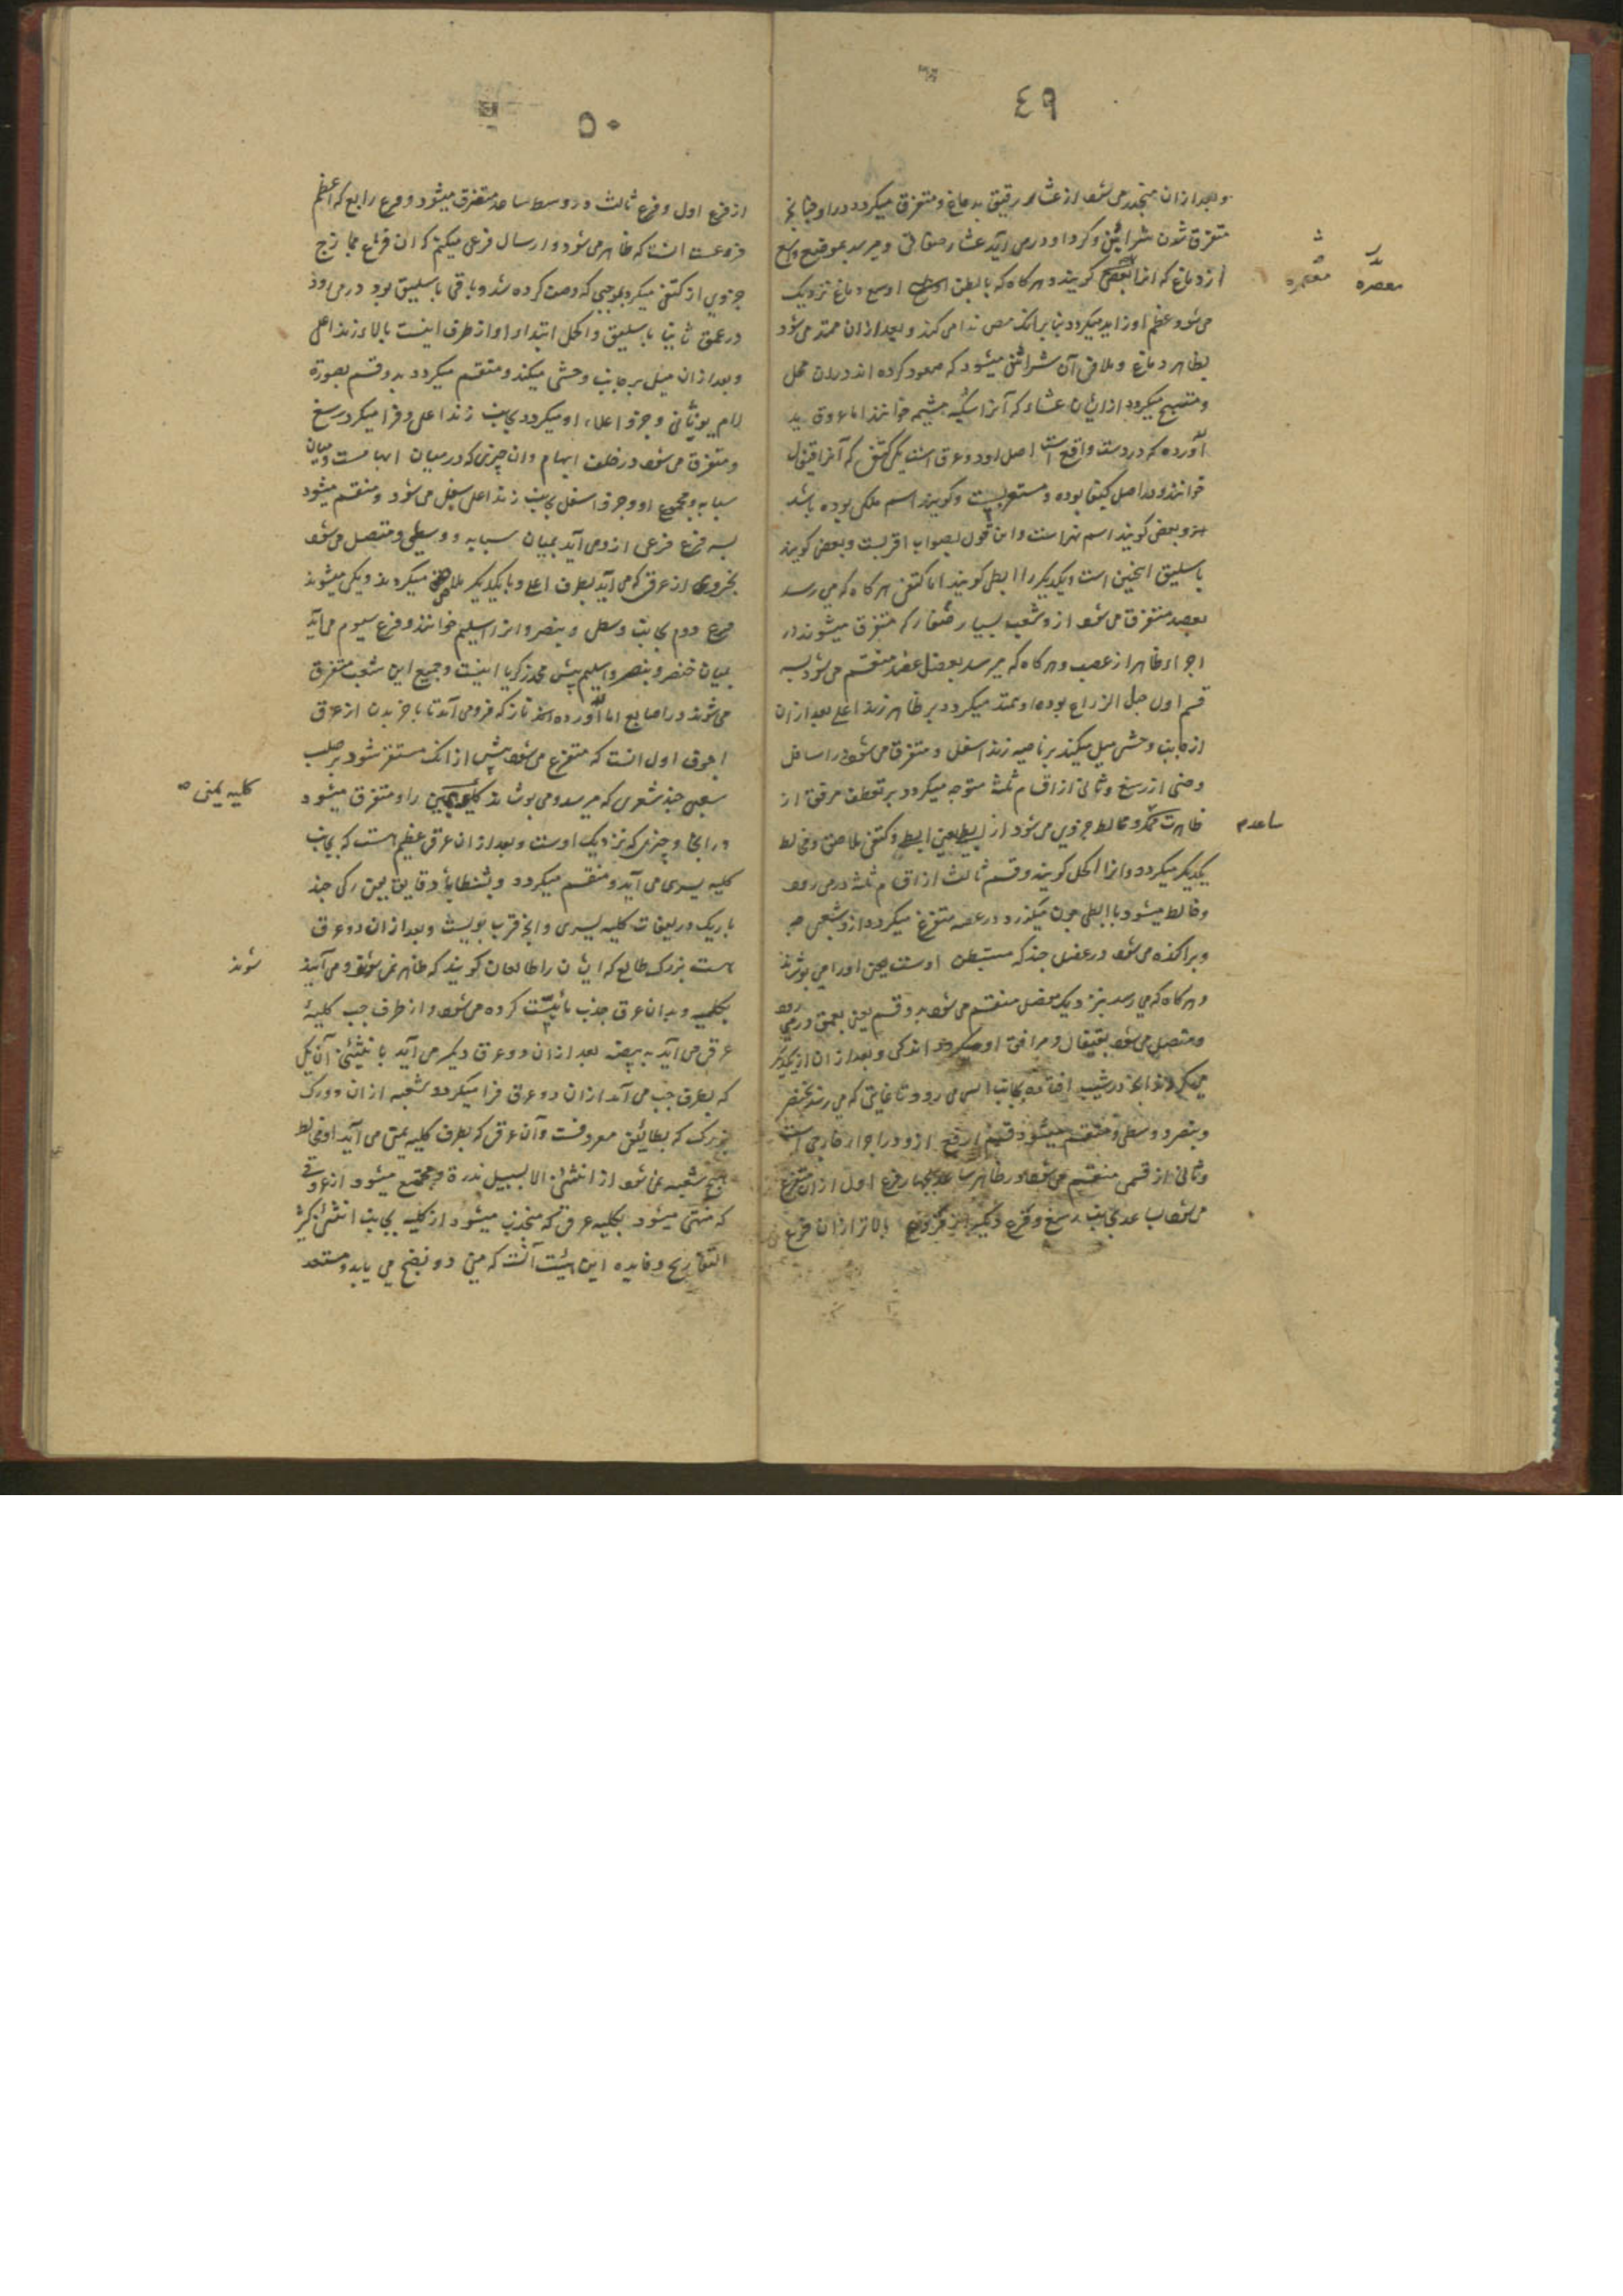 ٤٩
وبعد ازان منجذب می شود از غشاء رقیق بدماغ و متفرق میکردد در او چنانچه
متفرق شدن شرائین و کرد او در می آید غشاء صفاقی و میرسد بموضع واسع
از دماغ که انرا معصره کویند و هرکاه که با بطن اوسع دماغ نزدیک
می شود عظم او زاید میکردد بنابرانک مص ندا می کند و بعد ازان ممتد می شود
بظاهر دماغ و ملاقی آن شرائین میشود که صعود کرده اند دران محل
و منتسج میکردد ازایشان غشاء که آنرا شبکیه مشیمه خوانند اما عروق ید
آورده که در دست واقع است اصل او دو عرق است یکی کتفی که آنرا قیفال
خوانند و در اصل کیفا بوده و مستعربست و کویند اسم ملکی بوده باشد
و بعضی کویند اسم نهر است و این قول بصواب اقربست و بعضی کویند
باسلیق اینچنین است و یکدیکر را ابطی کویند اما کتفی هرکاه که می رسد
بعضد متفرق می شود ازو شعب بسیار صغار که متفرق میشوند در
اجزاء ظاهر از عضد و هرکاه که میرسد بمفصل عضد منقسم می شود بسه
قسم اول حبل الذراع بوده او ممتد میکردد بر ظاهر زند اعلی بعد ازان
از جانب وحشی میل میکند بر ناحیه زند اسفل و متفرق می شود در اسافل
وحشی از رسغ و ثانی از اقسام ثلثه متوجه میکردد بر تعطف مرفق از
ظاهر ساعد و مخالط جزوی می شود از ابطی یعنی ابطی و کتفی ملاصق و مخالط
یکدیکر میکردد و انرا اکحل کویند و قسم ثالث از اقسام ثلثه در می رود
و مخالط میشود با ابطی چون میکذرد در عضد متفرع میکردد ازو شعبی چند
و پراکنده می شود در عضلی چند که مستبطن اوست یعنی اورا می پوشانند
و هرکاه که می رسد بنزدیک مفصل منقسم می شود بدو قسم یعنی بعمق در می رود
و متصل می شود بقیفال و مرافق او میکردد اندکی و بعد ازان از یکدیکر
و بنصر و وسطی و منقسم میشود قسم ارفع ازو در اجزاء خارجی است
و ثانی از قسمی منقسم می شود در ظاهر ساعد بچهار فرع اول ازان متفرع
می شود بساعد بجانب رسغ و فرع دیکر بالاتر ازان فرع
معصره
ساعد
٥٠
از فرع اول و فرع ثالث در وسط ساعد متفرق میشود و فرع رابع که اعظم
فروعست انست که ظاهر می شود و ارسال فرعی میکند که ان فرع ممازج
جزوی از کتفی میکردد بموجبی که وصف کرده شد و باقی باسلیق بود در می رود
در عمق ثانیا باسلیق و اکحل ابتداء او از طرف انیست بالاء زند اعلی
و بعد ازان میل بر جانب وحشی میکند و منقسم میکردد بدو قسم بصورة
لام یونانی و جزو اعلاء او میکردد بجانب زند اعلی و فرا میکیرد رسغ
و متفرق می شود در خلف ابهام و ان چیزی که در میان ابهامست و میان
سبابه و مجموع او و جزو اسفل بجانب زند اعلی سفل می شود و منقسم میشود
بسه فرع فرعی ازو می آید بمیان سبابه و وسطی و متصل می شود
بجزوی از عرقی که می آید بطرف اعلی و با یکدیکر ملاصق میکردند و یکی میشوند
فرع دوم بجانب وسطی و بنصر و انرا اسیلم خوانند و فرع سیوم می آید
بمیان خنصر و بنصر و اسیلم پیش محمد زکریا اینست و جمیع این شعب متفرق
می شوند در اصابع اما آورده نازکه فرو می آید تا باخر بدن از عرق
اجوف اول انست که متفرع می شود پیش ازانک مستقر شود بر صلب
شعبی چند شعری که میرسد و می پوشاند کلیه یمنی را و متفرق میشود
درانجا و چیزی که نزدیک اوست و بعد ازان عرق عظیم است که بجانب
کلیه یسری می آید و منقسم میکردد یعنی رکی چند
باریک در لفافت کلیه یسری و انچه قرب بویست و بعد ازان دو عرق
هست بزرک طالع که ایشان را طالعان کویند که ظاهر می شوند و می آیند
بکلیه و بدان عرق جذب مائیت کرده می شود و از طرف چپ کلیۀ
عرقی می آید به بیضه بعد ازان دو عرق دیکر می آید بانثیین آن یکی
که بطرف چپ می آید ازان دو عرق فرا میکیرد شعبه ازان دو رک
بزرک که بطالعین معروفست و آن عرقی که بطرف کلیه یمنی می آید او مخالط
هیچ شعبه نمی شود از انثیین الا بسبیل ندرة و مجتمع میشود از عروقی
که منتهی میشود بکلیه عرقی که منجذب میشود از کلیه بجانب انثیین کثیر
التعاریج و فایده این هیئت آنست که منی درو نضج می یابد و مستعد
کلیه یمنی
شوند